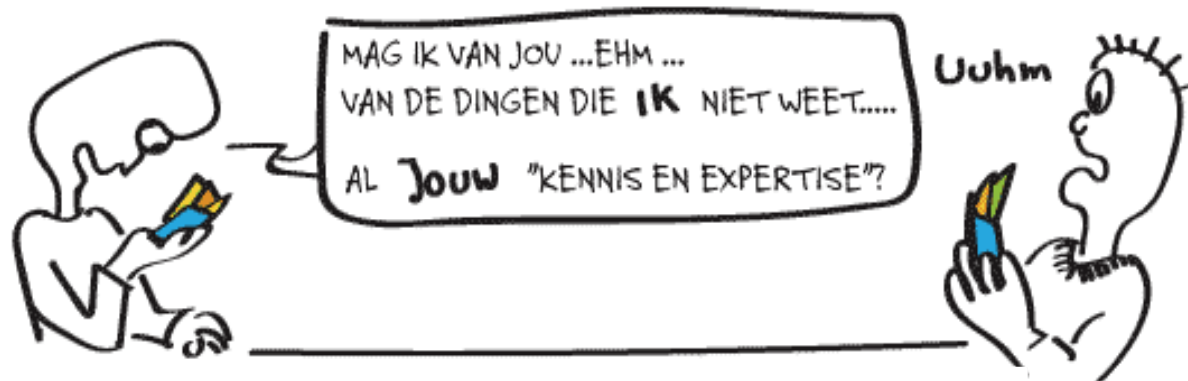 MAG IK VAN JOU ...EHM ...
VAN DE DINGEN DIE IK NIET WEET.....
AL JOUW "KENNIS EN EXPERTISE"?
Uuhm